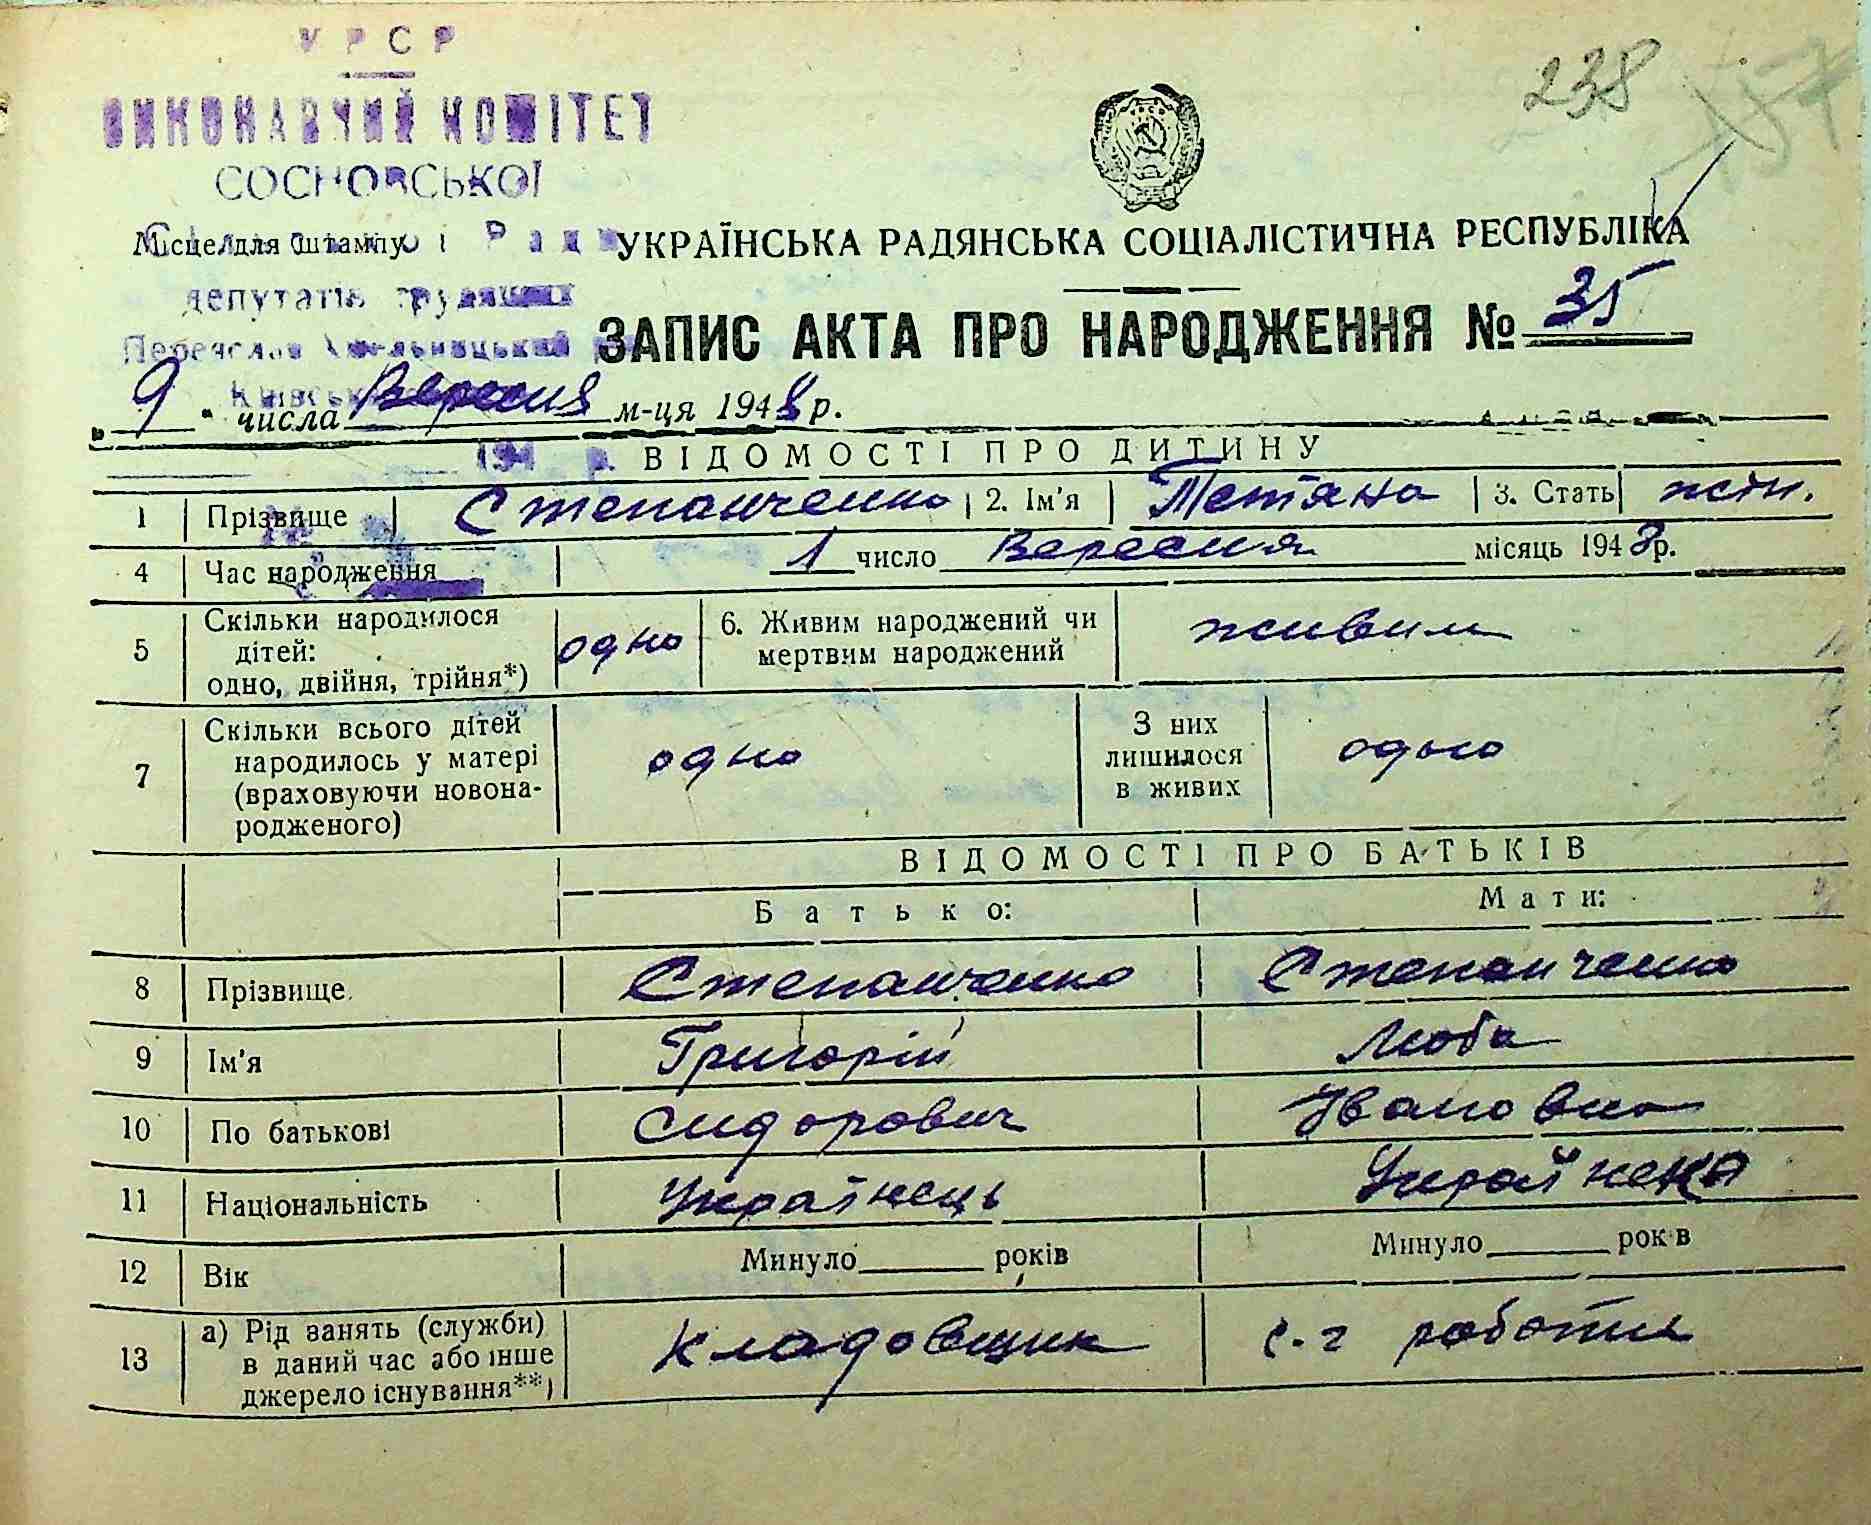 УРСР
ВИКОНАВЧИЙ КОМІТЕТ
СОСНОВСЬКОЇ
238
157
Місце для штампу Сільської Ради
УКРАЇНСЬКА РАДЯНСЬКА СОЦІАЛІСТИЧНА РЕСПУБЛІКА
депутатів трудящих
Переяслав Хмельницький
ЗАПИС АКТА ПРО НАРОДЖЕННЯ № 35
Київськ
„ 9 " числа Вересня м-ця 1948 р.
194 р.
ВІДОМОСТІ ПРО ДИТИНУ
1 Прізвище Степанченко 2. Ім'я Тетяна 3. Стать жін.
4 Час народження 1 число Вересня місяць 1948 р.
5 Скільки народилося дітей: одно, двійня, трійня*) одно 6. Живим народжений чи мертвим народжений живим
7 Скільки всього дітей народилось у матері (враховуючи новона-родженого) одно З них лишилося в живих одно
ВІДОМОСТІ ПРО БАТЬКІВ
Батько: Мати:
8 Прізвище Степанченко Степанченко
9 Ім'я Григорій Люба
10 По батькові Сидорович Івановна
11 Національність Українець Українка
12 Вік Минуло років Минуло рок в
13 а) Рід занять (служби) в даний час або інше джерело існування**) Кладовщик с-г робота